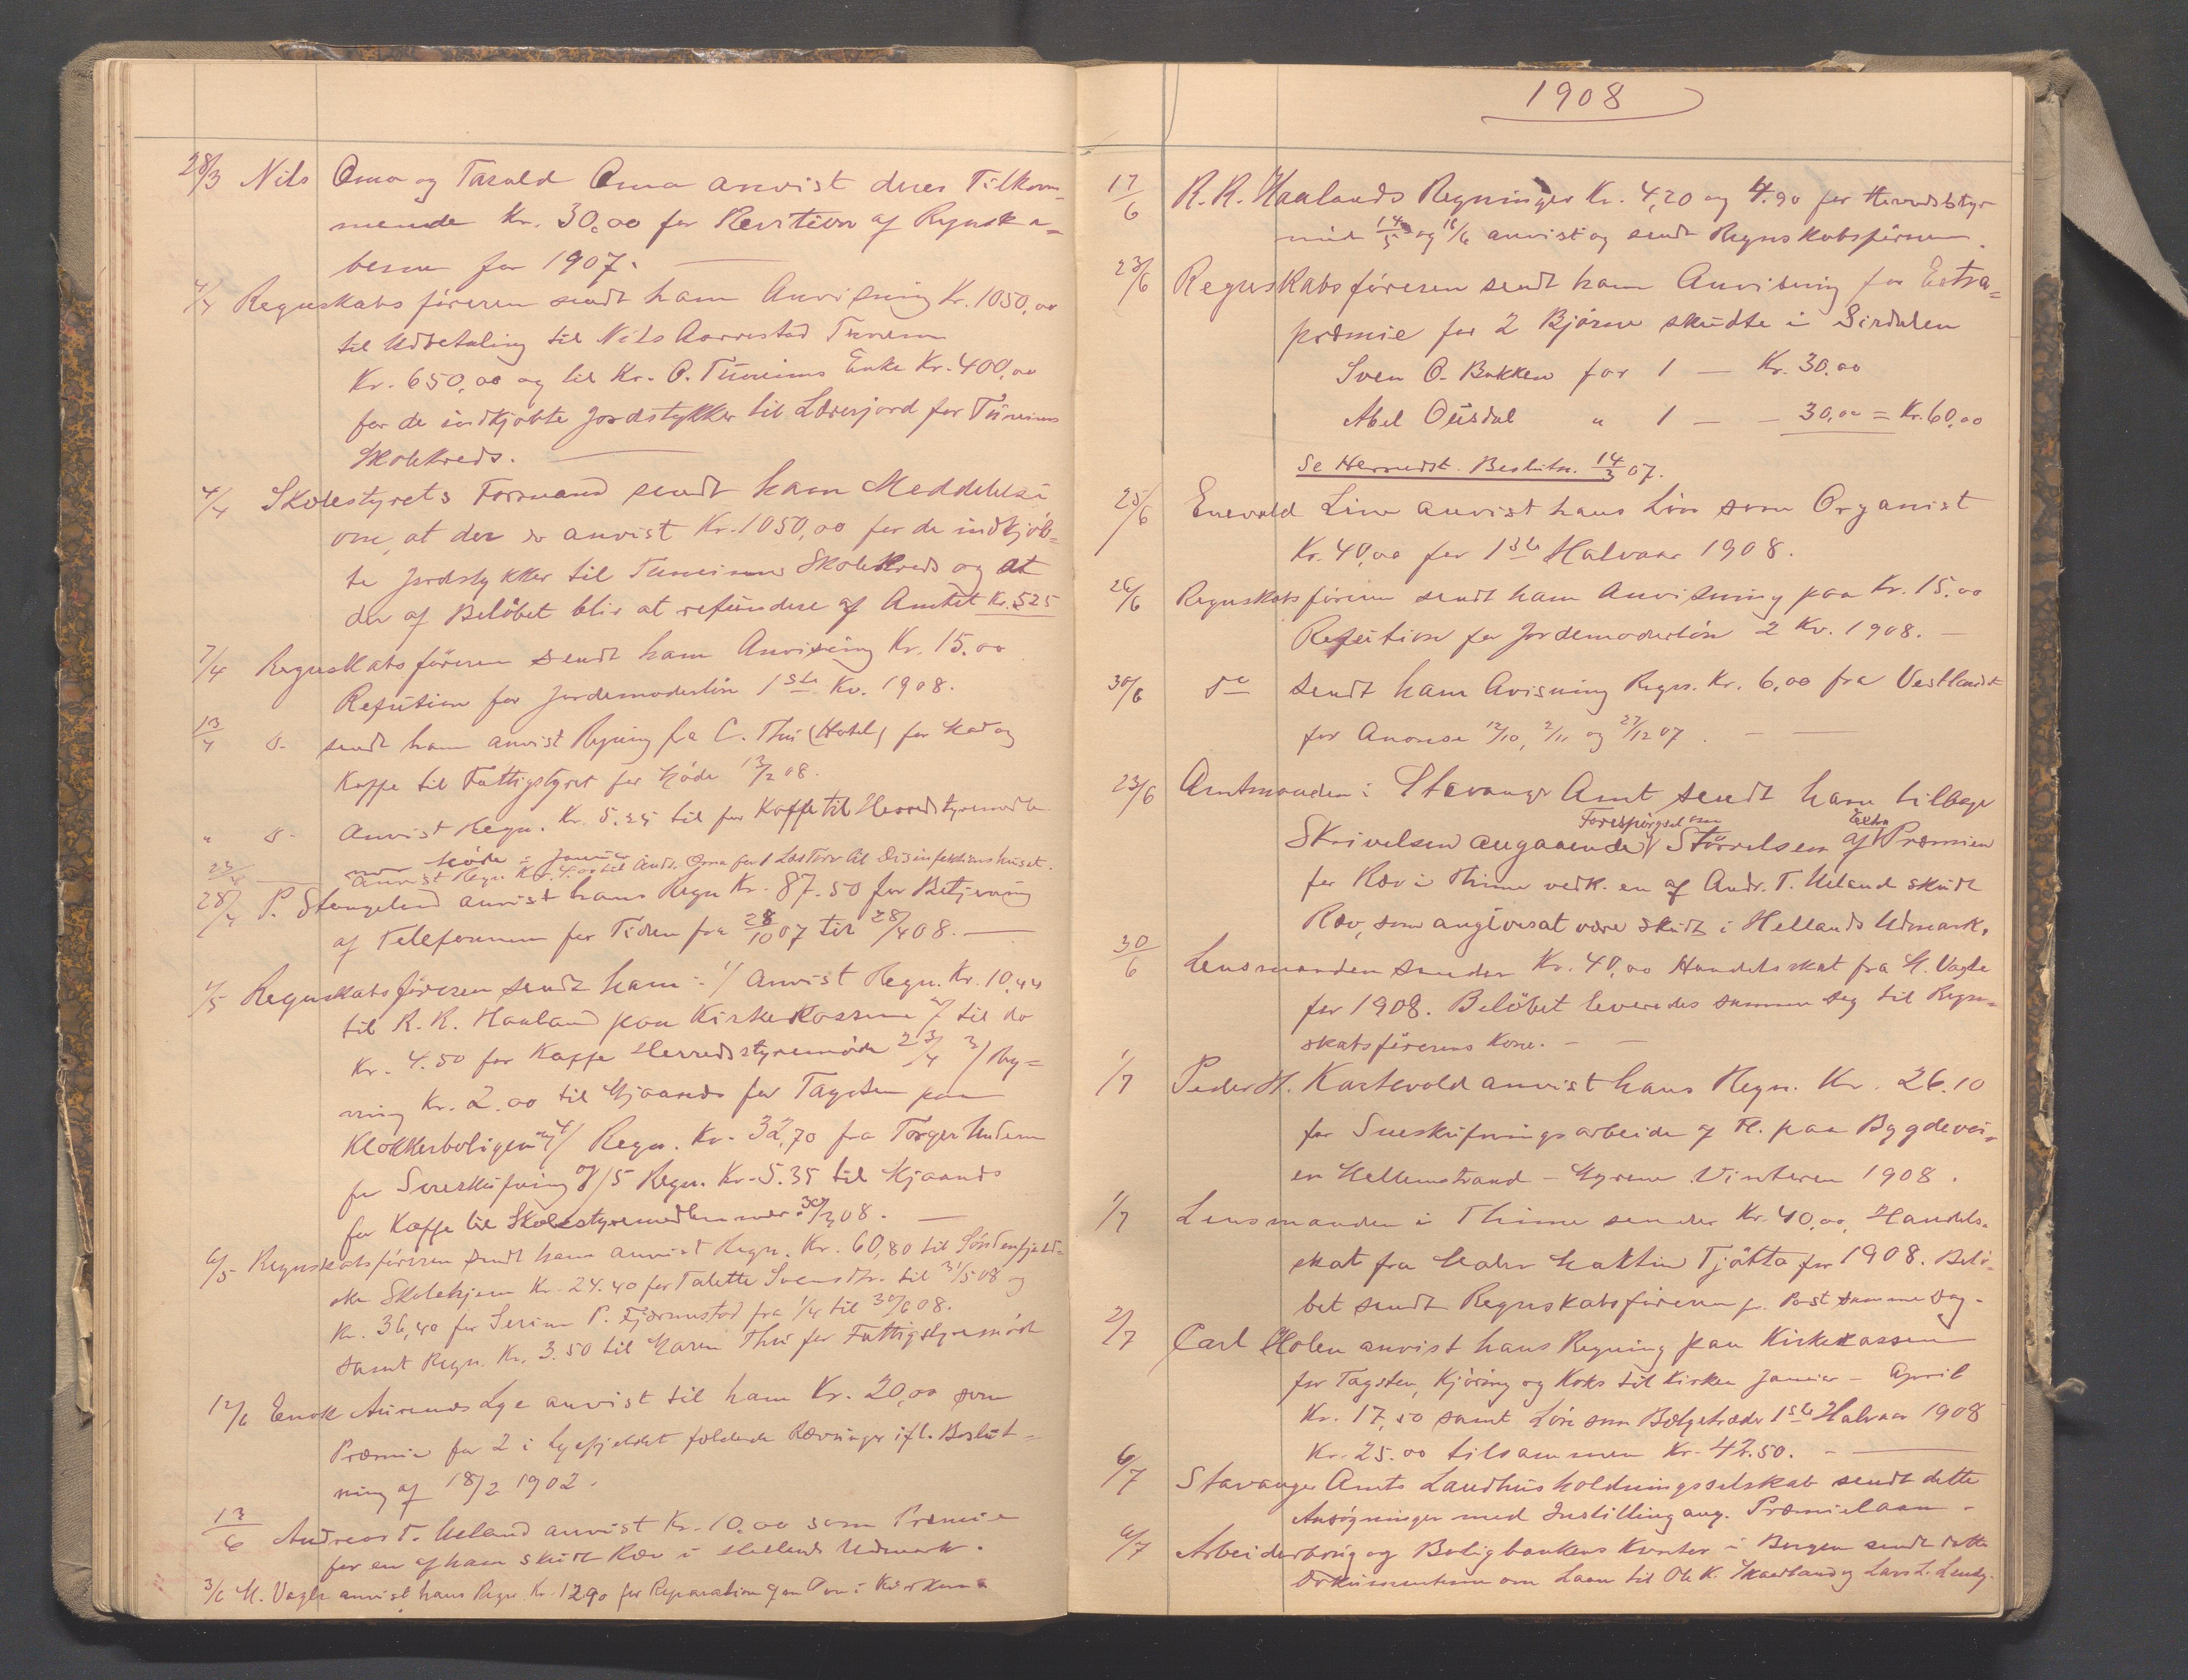 28/3 Nils Oma og Tarald Oma anvist deres Tilkom-
mende Kr. 30,00 for Revition af Regnska-
berne for 1907.
4/4 Regnskabsföreren sendt ham Anvisning Kr. 1050,00
til Udbetaling til Nils Aarrestad Tunem
Kr. 650,00 og til Kr. O. Tunems Enke Kr. 400,00
for de indkjöbte Jordstykker til Lærerjord for Tunems
Skolekreds.
4/4 Skolestyrets Formand sendt ham Meddelelse
om, at der er anvist Kr. 1050,00 for de indkjöb-
te Jordstykker til Tuneims Skolekreds og at
der af Belöbet blir at refundere af Amtet Kr. 525
7/4 Regnskabsföreren sendt ham Anvisning Kr. 15.00
Refution for Jordemoderlön 1ste Kv. 1908.
13/4 sendt ham anvist Regning fra C. Thu (Hotel) for Mad og
Kaffe til Fattigstyret for Möde 13/2 08.
" Anvist Regn. Kr. 5.25 til for Kaffe til Herredstyremedle
Möde i Januar
23/4 anvist Regn. Kr. 4.00 til Andr. Oma for 1 Læs Torv til Disinfektionshuset.
28/4 P. Stangeland anvist hans Regn Kr. 87.50 for Betjening
af Telefonen for Tiden fra 28/10 07 til 28/4 08.
1/5 Regnskabsföreren sendt ham: 1/ Anvist Regn. Kr. 10,44
til R. R. Haaland paa Kirkekassen 2/ til do
Kr. 4.50 for Kaffe Herredsstyremöde 23/4 3/ Reg-
ning Kr. 2.00 til Mjaands for Tagsten paa
Klokkerboligen og 4/ Regn. Kr. 32,70 fra Torger
for Sneskufning og 5 Regn. Kr. 5.35 til Mjaands
for Kaffe til Skolestyremedlemmer 30/3 08.
6/5 Regnskabsföreren sendt ham anvist Regn. Kr. 60,80 til Söndenfjeld-
ske Skolehjem Kr. 24.40 for Talette Svensdtr. til 31/5 08 og
Kr. 36,40 for Serine P. Fjermestad fra 1/4 til 30/6 08.
samt Regn. Kr. 3.50 til Maren Thu for Fattigstyremöde
12/6 Enok Aurenes Lye anvist til ham Kr. 20,00 som
Præmie for 2 i Lyefjeldet fældede Rævunger ifl. Beslut-
ning af 18/2 1902.
13/6 Andreas T. Ueland anvist Kr. 10,00 som Præmie
for en af ham skudt Ræv i Hellands Udmark.
3/6 M. Vagle anvist hans Regn Kr. 12.90 for Reparation af en Ovn i Kirken
1908
17/6 R. R. Haalands Regninger Kr. 4,20 og 4.90 for Herredsstyr
14/5 og 16/6 anvist og sendt Regnskabsföreren.
23/6 Regnskabsföreren sendt ham Anvisning for Extra-
præmie for 2 Björne skudte i Sirdalen
Sven O. Bakken for 1 — Kr. 30.00
Abel Ousdal " 1 — - 30,00 = Kr. 60,00
Se Herredst. Beslutn. 14/3 07.
25/6 Enevald Line anvist hans Lön som Organist
Kr. 40,00 for 1ste Halvaar 1908.
26/6 Regnskabsföreren sendt ham Anvisning paa Kr. 15.00
Refution for Jordemoderlön 2 Kv. 1908. —
30/6 do sendt ham Avisning Regn. Kr. 6,00 fra Vestlandet
for Anonse 12/10, 2/11 og 27/12 07. —
23/6 Amtmanden i Stavanger Amt sendt ham tilbage
Skrivelsen angaaende Forespörgsel om Störrelsen af Extra Præmien
for Ræv i Thime vedk. en af Andr. T. Ueland skudt
Ræv, som angives at være skudt i Hellands Udmark.
30/6 Lensmanden sender Kr. 40,00 Handelsskat fra M. Vagle
for 1908. Belöbet leveredes samme Dag til Regn-
skabsförerens Kone. —
1/7 Peder H. Kartevold anvist hans Regn. Kr. 26.10
for Sneskufningsarbeide af H. paa Bygdevei-
en Hellemstrand - Myrene Vinteren 1908.
1/7 Lensmanden i Thime sender Kr. 40,00, Handels-
skat fra Maler Tjötta for 1908. Belö-
bet sendt Regnskabsföreren pr. Post samme Dag.
2/7 Carl Holen anvist hans Regning paa Kirkekassen
for Tagsten, Kjöring og Koks til Kirken Januar - April
Kr. 17,50 samt Lön som Belgetræder 1ste Halvaar 1908
Kr. 25.00 tilsammen Kr. 42.50. —
6/7 Stavanger Amts Landhusholdningsselskab sendt dette
Ansögninger med Instilling ang. Præmielaan.
6/7 Arbeiderbrug og Boligbankens Kontor i Bergen sendt dette
Dokumenterne om Laan til Ole K. Skaarland og Lars L.